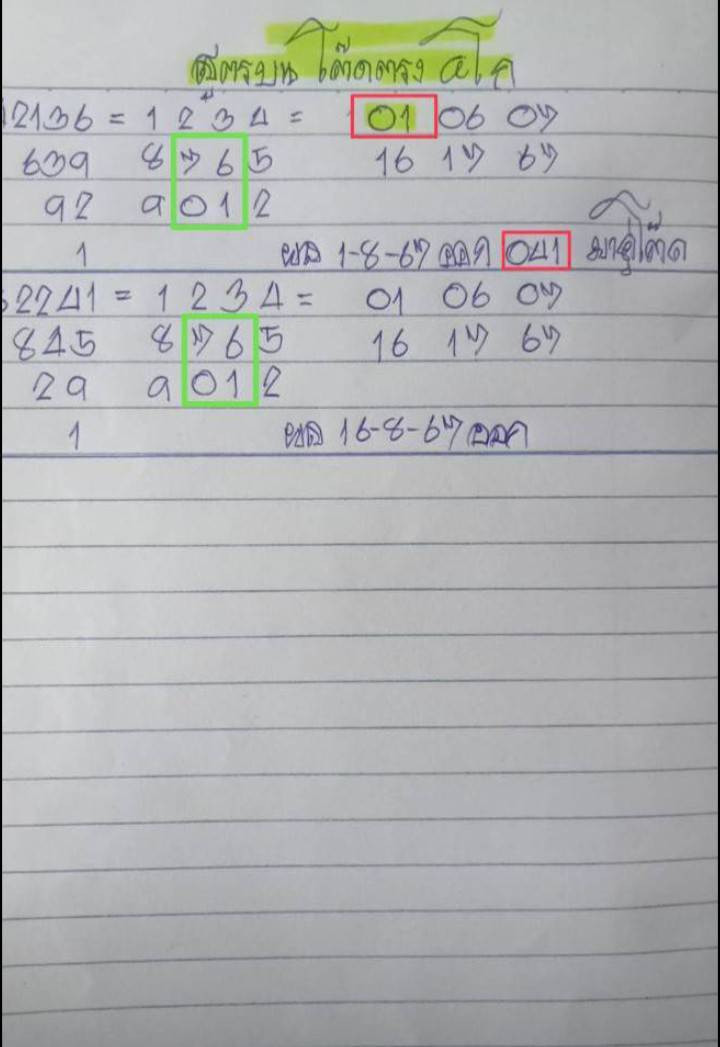 สูตรบน โต๊ดตรง
12136 = 1 2 3 4 = 01 06 07
639 8 7 6 5 16 17 67
92 9 0 1 2
1 ผล 1-8-67 ออก 041
32241 = 1 2 3 4 = 01 06 07
845 8 7 6 5 16 17 67
29 9 0 1 2
1 ผล 16-8-67 ออก